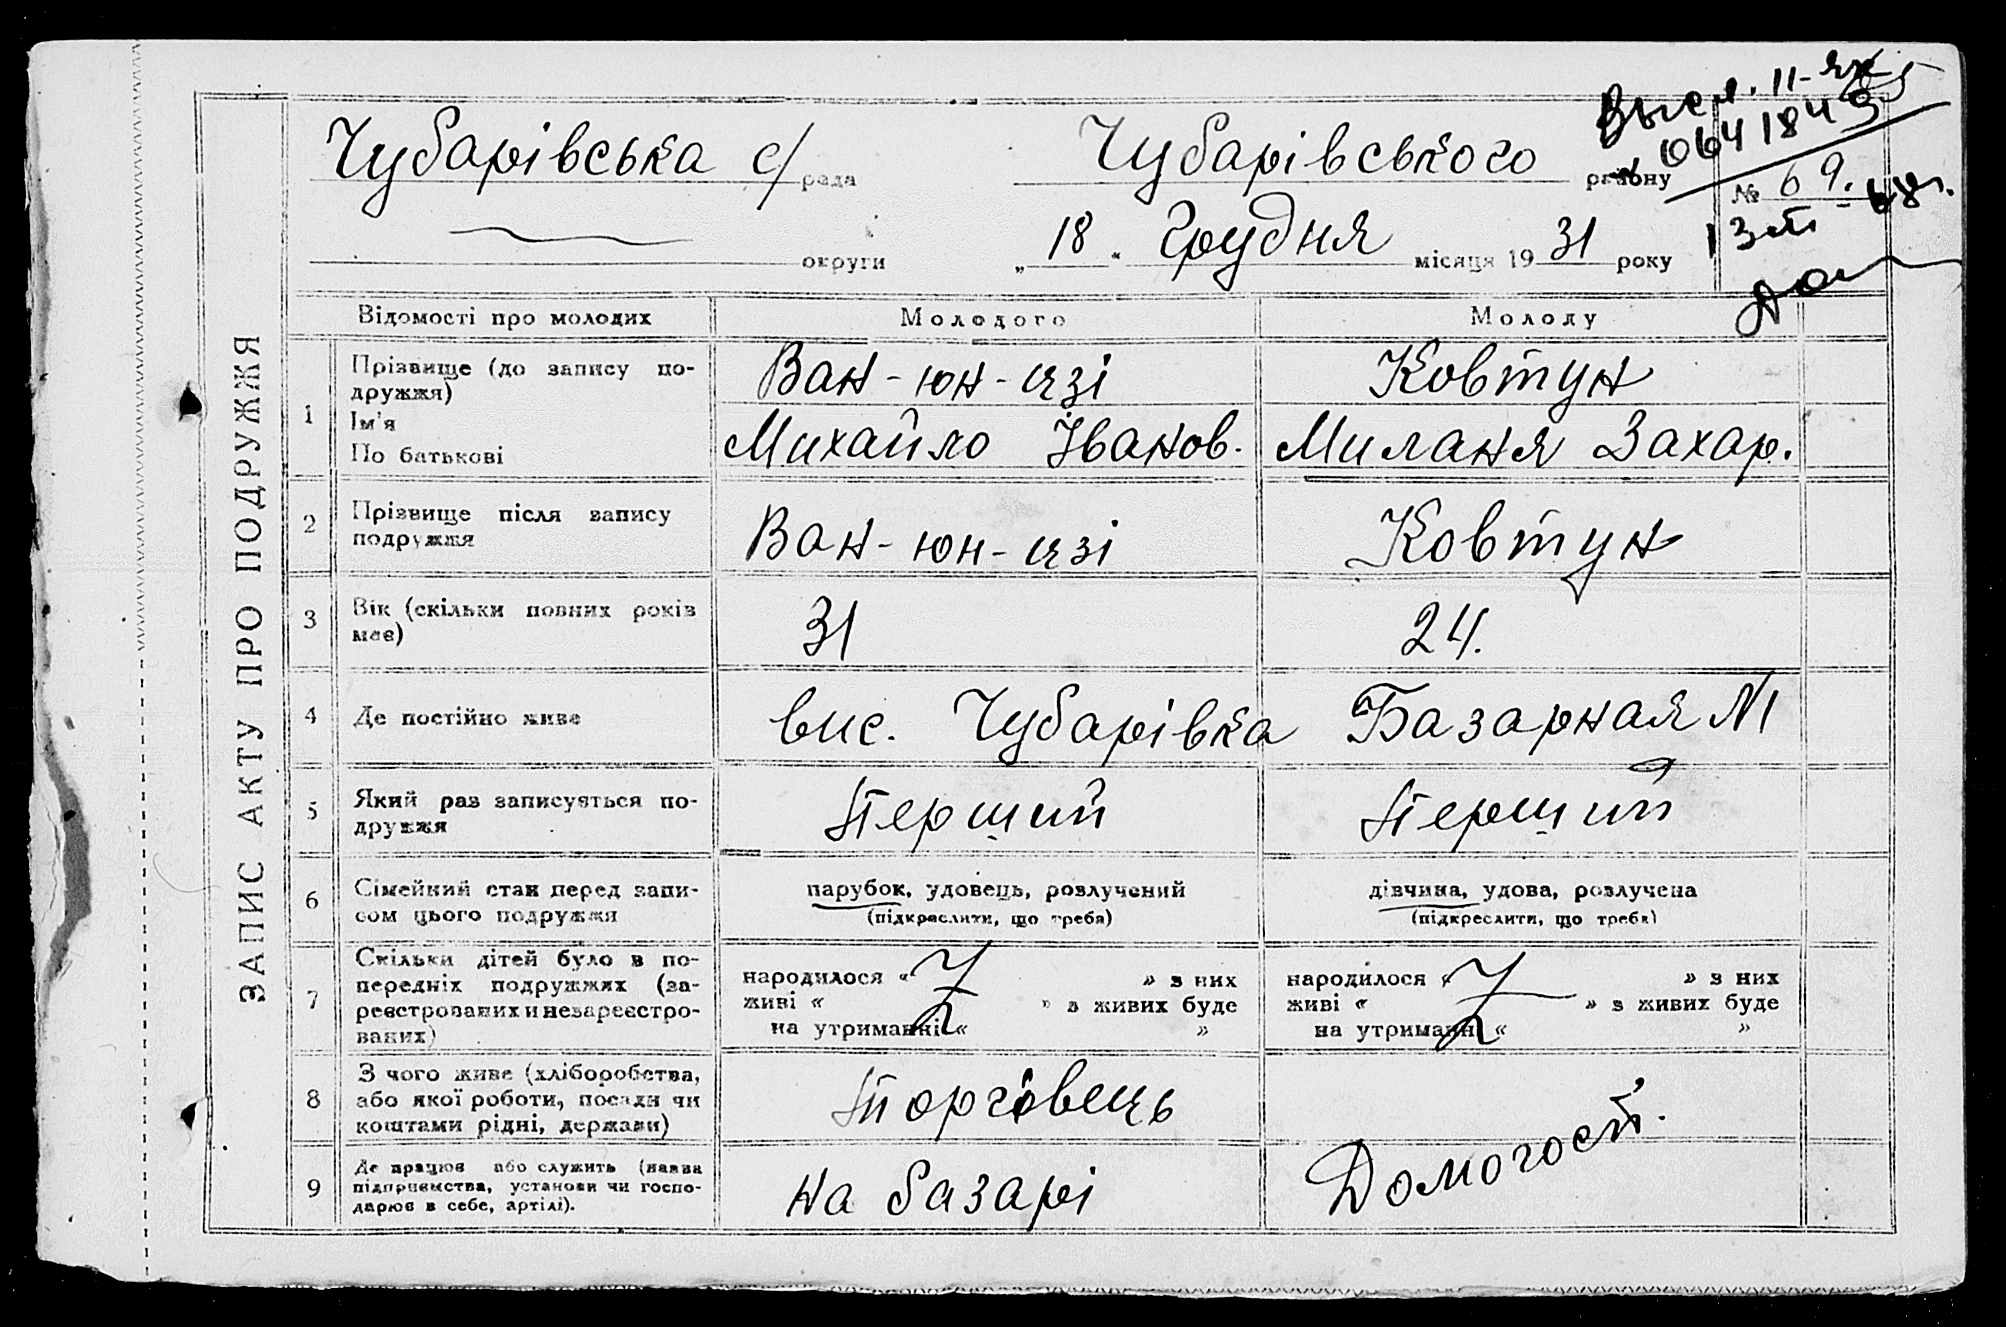 Высл. 11-ЯК
0641849
Чубарівська с/рада Чубарівського району № 69.
13/III-68г.
округи „18“ Грудня місяця 1931 року
ЗАПИС АКТУ ПРО ПОДРУЖЖЯ
Відомості про молодих Молодого Молоду
1 Прізвище (до запису по-
дружжя) Ван-юн-цзі Ковтун
Ім'я
По батькові Михайло Іванов. Миланя Захар.
2 Прізвище після запису
подружжя Ван-юн-цзі Ковтун
3 Вік (скільки повних років
має) 31 24.
4 Де постійно живе вис. Чубарівка Базарная №1
5 Який раз записується по-
дружжя Перший Перший
6 Сімейний стан перед запи-
сом цього подружжя парубок, удовець, розлучений дівчина, удова, розлучена
(підкреслити, що треба) (підкреслити, що треба)
7 Скільки дітей було в по-
передніх подружжях (за-
реєстрованих и незареєстро-
ваних) народилося « » з них народилося « » з них
живі « » з живих буде живі « » з живих буде
на утриманні « » на утриманні « »
8 З чого живе (хліборобства,
або якої роботи, посади чи
коштами рідні, держави) Торговець Домогосп.
9 Де працює або служить (назва
підприємства, установи чи госпо-
дарює в себе, артілі). на базарі